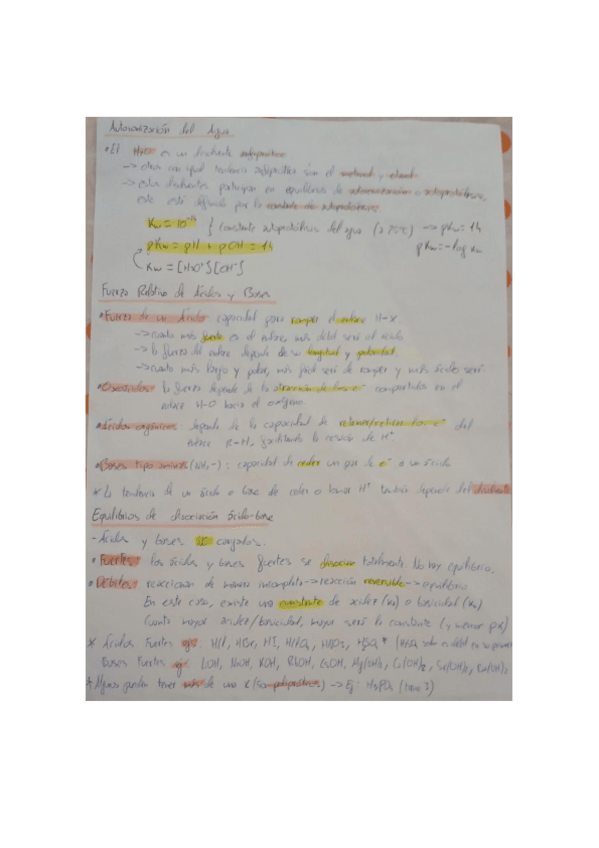 Autoionización del Agua
• El H₂O es un disolvente autoprótico
→ otros con igual tendencia autoprótica son el metanol y etanol
→ estos disolventes participan en equilibrios de autoionización o autoprotólisis,
este está definido por la constante de autoprotólisis.
Kw = 10⁻¹⁴ } Constante autoprotólisis del agua (a 25ºC) → pKw = 14
pKw = pH + pOH = 14 pKw = -log Kw
Kw = [H₃O⁺][OH⁻]
Fuerza Relativa de Ácidos y Bases
• Fuerza de un Ácido: capacidad para romper el enlace H-X.
→ cuanto más fuerte es el enlace, más débil será el ácido
→ la fuerza del enlace depende de su longitud y polaridad.
→ cuanto más largo y polar, más fácil será de romper y más ácido será
• Oxoácidos: la fuerza depende de la atracción de los e⁻ compartidos en el
enlace H-O hacia el oxígeno.
• Ácidos orgánicos: depende de la capacidad de los e⁻ del
enlace R-H, facilitando la cesión de H⁺
• Bases tipo aminas (NH₂-): capacidad de ceder un par de e⁻ a un ácido
* La tendencia de un ácido o base de ceder o tomar H⁺ también depende del disolvente
Equilibrios de disociación ácido-base
- Ácidos y bases cargados.
• Fuertes: los ácidos y bases fuertes se disocian totalmente. No hay equilibrio.
• Débiles: reaccionan de manera incompleta → reacción reversible → equilibrio
En este caso, existe una constante de acidez (Ka) o basicidad (Kb)
Cuanto mayor acidez/basicidad, mayor será la constante (y menor pK)
* Ácidos Fuertes ej: HCl, HBr, HI, HClO₄, HNO₃, H₂SO₄*
Bases Fuertes ej: LiOH, NaOH, KOH, RbOH, CsOH, Mg(OH)₂, Ca(OH)₂, Sr(OH)₂, Ba(OH)₂
* Algunos pueden tener más de una K (son polipróticos) → Ej: H₃PO₄ (tiene 3)